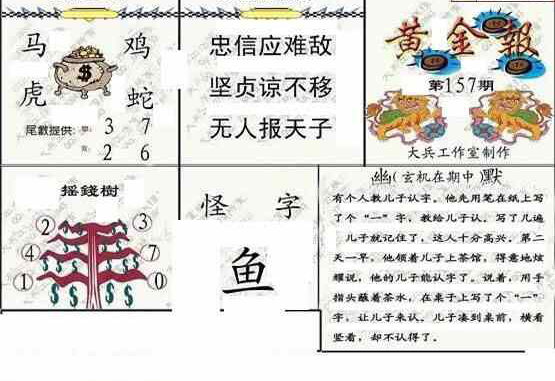 马 鸡
虎 蛇
尾數提供: 3 7
2 6
忠信应难敌
坚贞谅不移
无人报天子
黄金報
第157期
大兵工作室制作
摇錢樹
2 3
4 7
1 0
怪 字
鱼
幽(玄机在期中 默
有个人教儿子认字。他先用笔在纸上写
了个“一”字，教给儿子认。写了几遍
，儿子就记住了，这人十分高兴。第二
天一早，他领着儿子上茶馆，得意地炫
耀说，他的儿子能认字了。说着，用手
指头蘸着茶水，在桌子上写了个“一”
字，让儿子来认。儿子凑到桌前，横看
竖看，却不认得了。